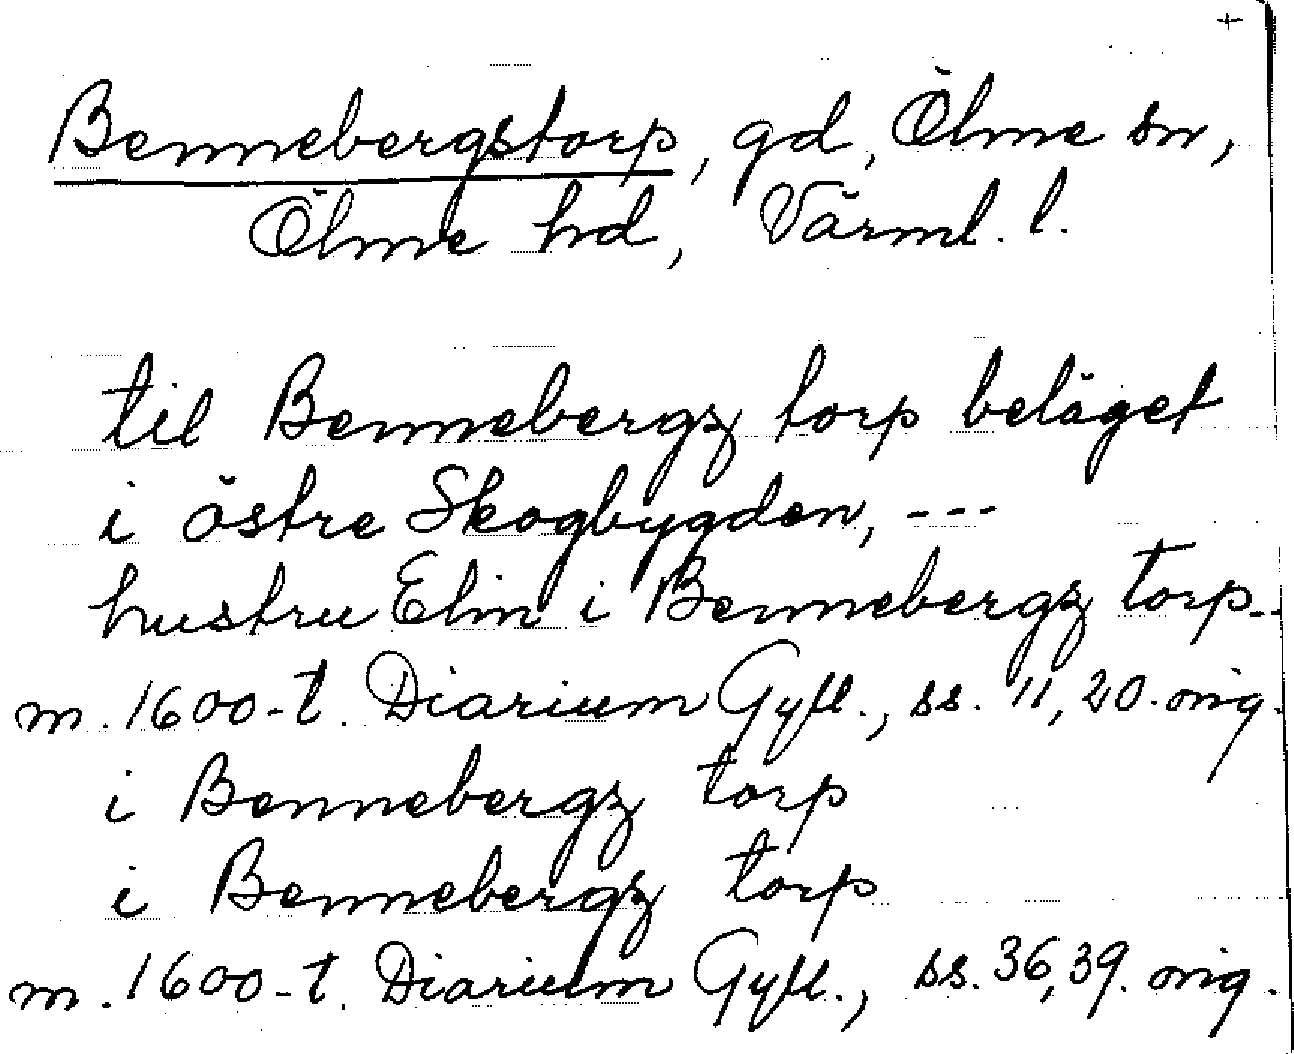 +
Bennebergstorp, gd, Ölme sn,
Ölme hd, Värml. l.
til Bennebergz torp beläget
i östre Skogbygden, ---
hustru Elin i Bennebergz torp--
m. 1600-t. Diarium Gyll., ss. 11, 20. orig.
i Bennebergz torp
i Bennebergz torp
m. 1600-t. Diarium Gyll., ss. 36, 39. orig.